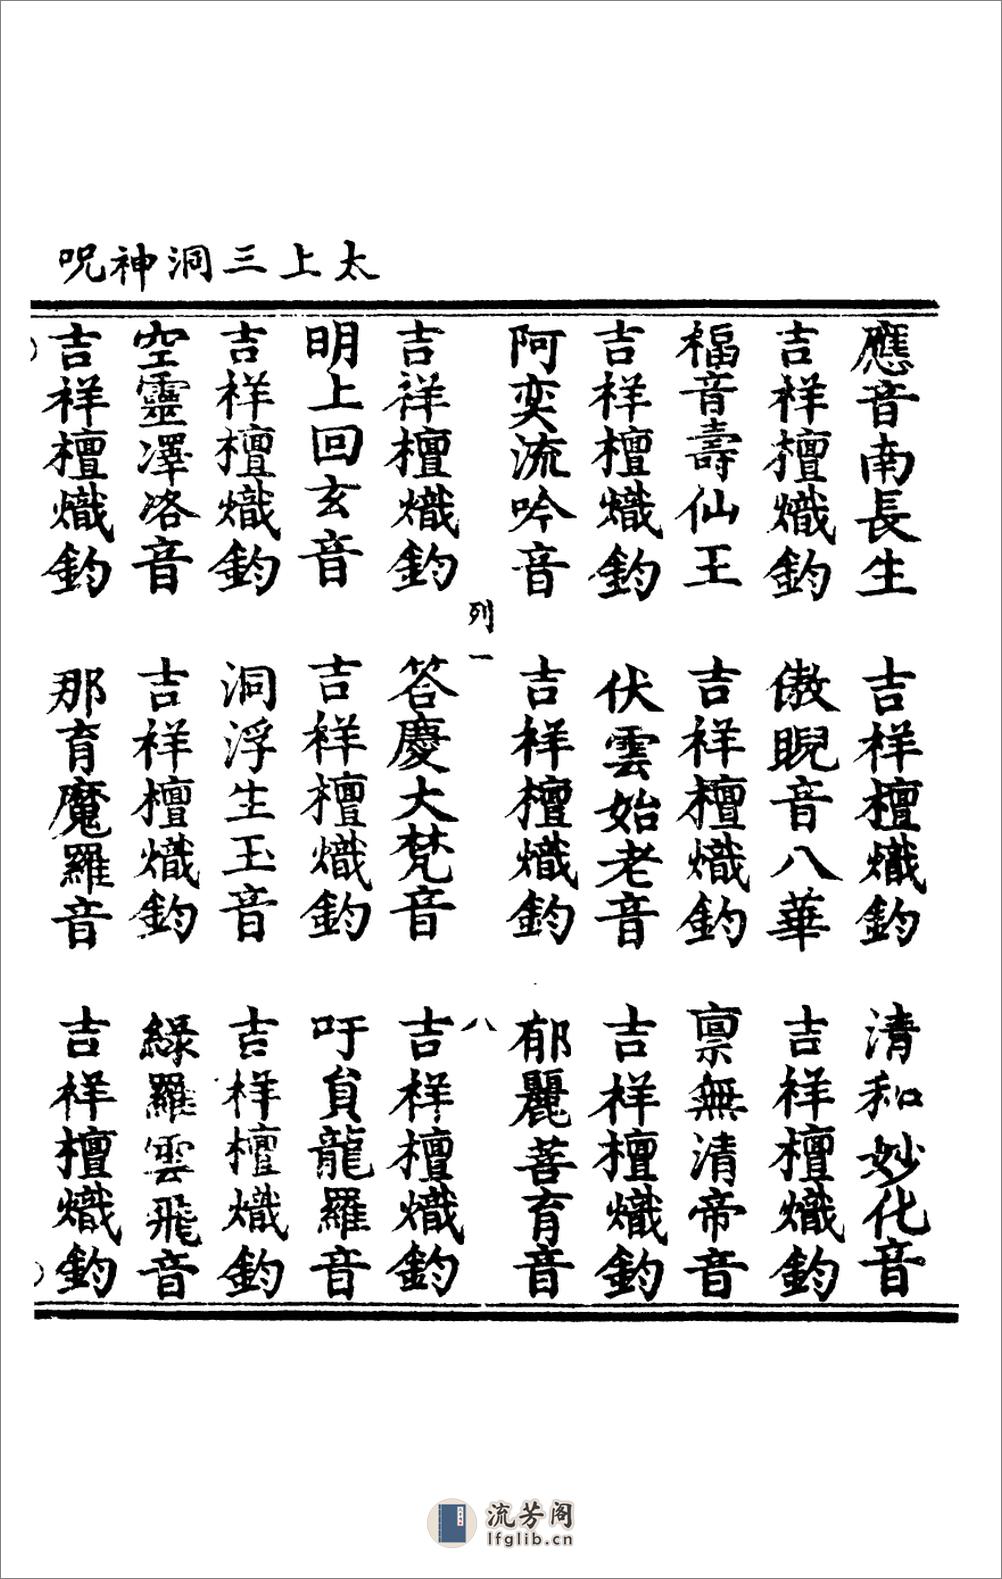 太上三洞神呪
應音南長生　吉祥檀熾鈞　清和妙化音
吉祥檀熾鈞　傲睨音八華　吉祥檀熾鈞
福音壽仙王　吉祥檀熾鈞　禀無清帝音
吉祥檀熾鈞　伏雲始老音　吉祥檀熾鈞
阿奕流吟音　吉祥檀熾鈞　郁麗菩育音
列一　八
吉祥檀熾鈞　答慶大梵音　吉祥檀熾鈞
明上回玄音　吉祥檀熾鈞　吁貟龍羅音
吉祥檀熾鈞　洞浮生玉音　吉祥檀熾鈞
空靈澤洛音　吉祥檀熾鈞　綠羅雲飛音
吉祥檀熾鈞　那育魔羅音　吉祥檀熾鈞
流芳阁
lfglib.cn